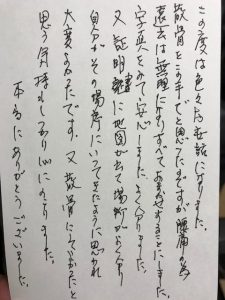 この度は色々お世話になりました。
散骨をこの手でと思ったのですが腰痛の為
遠出は無理になりすべておまかせすることにしました。
写真をみて安心しました。よく分りました。
又証明書に地図が出て場所がよく分り
自分がその場所にいってきたように思われ
大変よかったです。又散骨にしてよかったと
思う気持
心に
本当にありがとうございました。